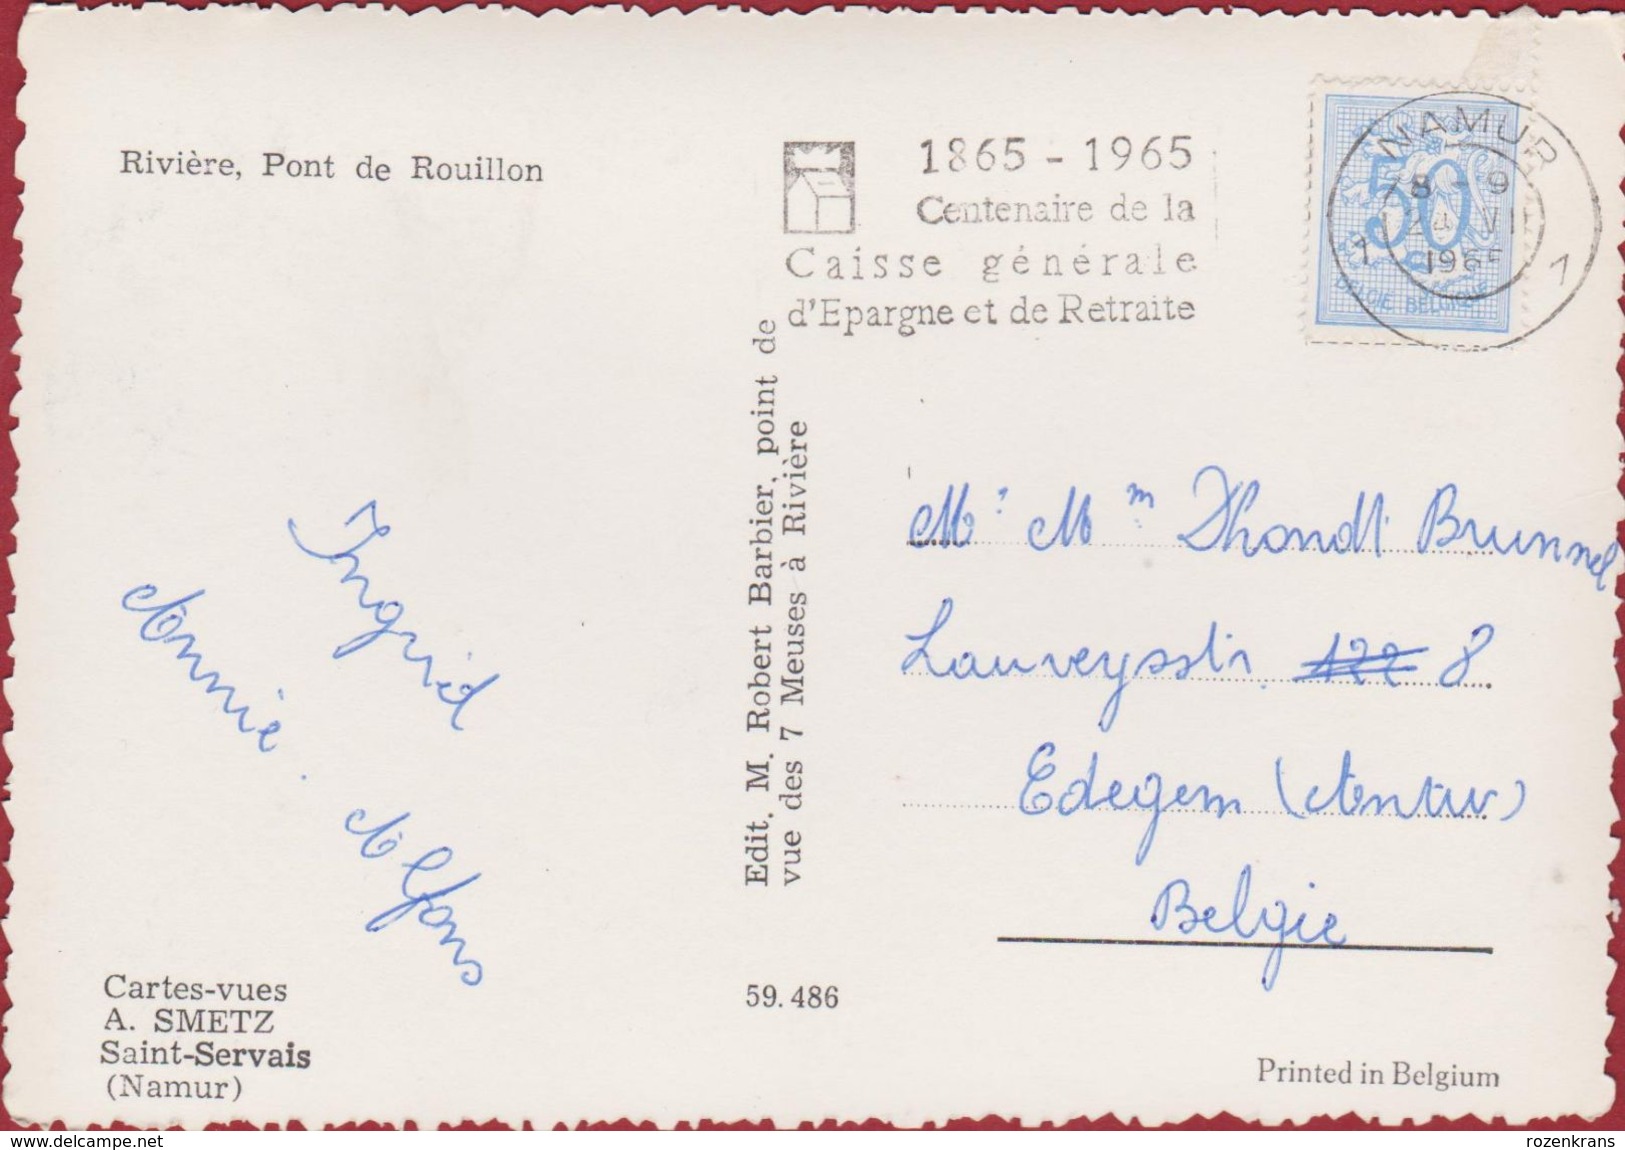 Rivière, Pont de Rouillon
1865 - 1965
Centenaire de la
Caisse générale
d'Epargne et de Retraite
NAMUR
8 - 9
VII
1965
1 1
50
BELGIE BELGIQUE
Ingrid
Annie. Alfons
Edit. M. Robert Barbier, point de
vue des 7 Meuses à Rivière
Mr Mm Dhondt Brunnel
Laureysstr. 122 8
Edegem (Antw)
Belgie
Cartes-vues
A. SMETZ
Saint-Servais
(Namur)
59.486
Printed in Belgium
delcampe.net
rozenkrans